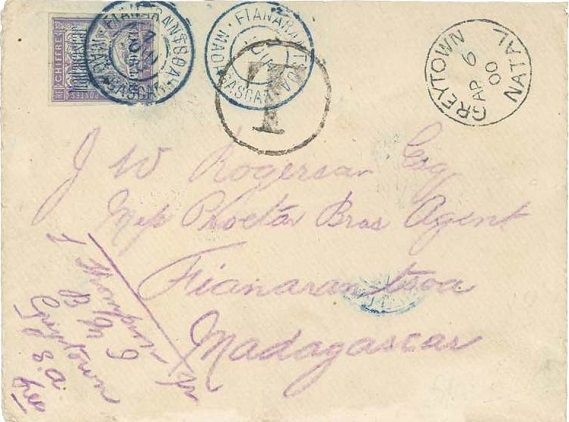 CHIFFRE
FIANARANTSOA
MADAGASCAR
FIANARANTSOA
MADAGASCAR
T
GREYTOWN
AP 6
00
NATAL
J W Rogerson Esq
Bros Agent
Fianarantsoa
Madagascar
Thompson
Greytown
S.A.